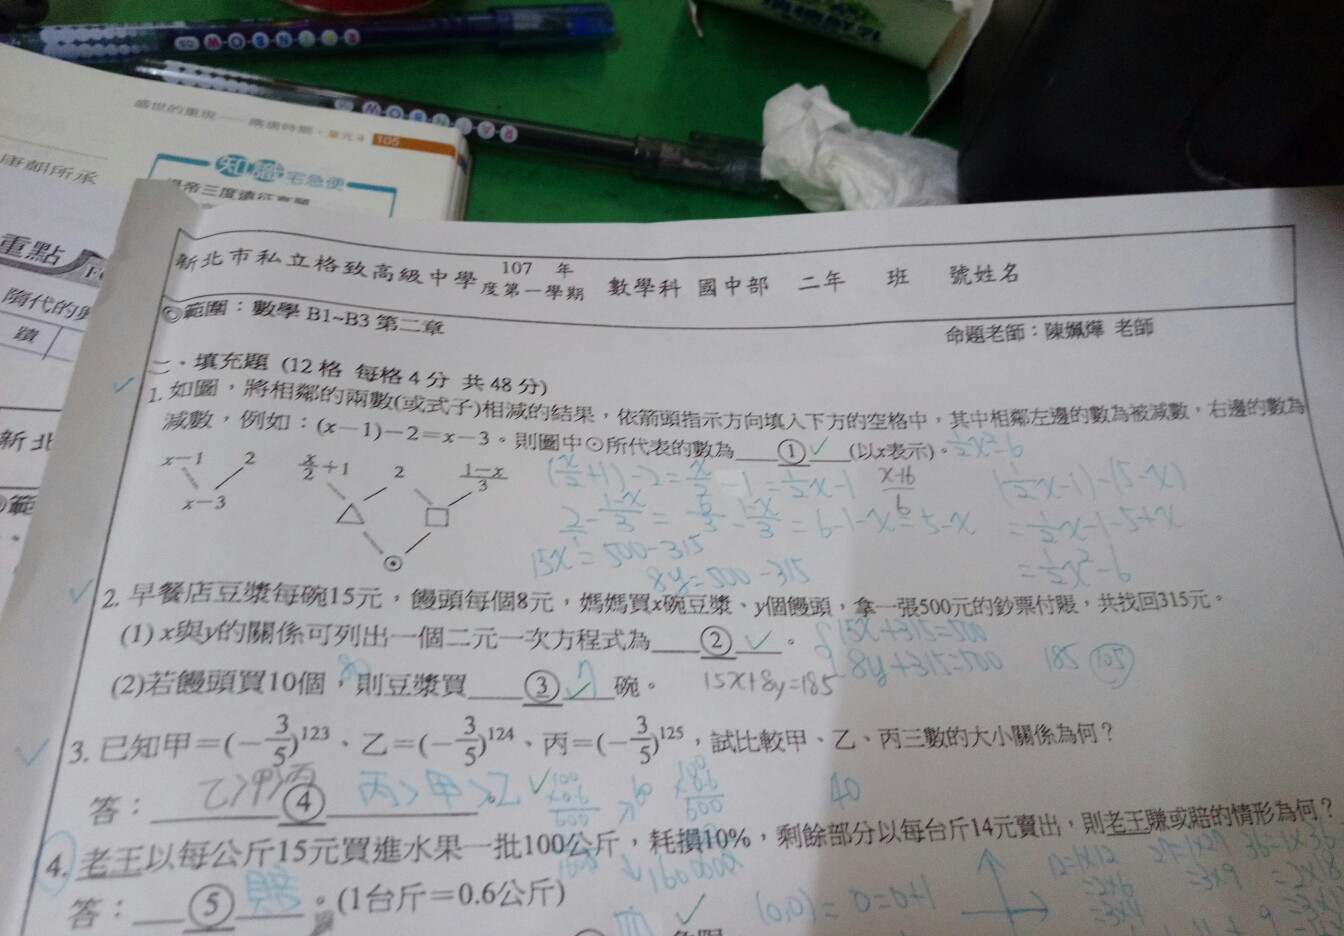 盛世的重現——隋唐時期・單元4 105
知識宅急便
唐朝所承
重點
隋代的
蹟
新北
範
新北市私立格致高級中學 107 年度第一學期 數學科 國中部 二年 班 號姓名
◎範圍：數學 B1~B3 第二章
命題老師：陳姵燁 老師
二、填充題 (12 格 每格 4 分 共 48 分)
1. 如圖，將相鄰的兩數(或式子)相減的結果，依箭頭指示方向填入下方的空格中，其中相鄰左邊的數為被減數，右邊的數為
減數，例如：(x－1)－2＝x－3。則圖中⊙所代表的數為____①____(以x表示)。½x²-6
x－1 2 x/2＋1 2 (1－x)/3
x－3 △ □
⊙
(x/2+1)-2=x/2-1=½x-1
x-16/6
(½x-1)-(5-x)
2/1-(1-x)/3=6/3-(1-x)/3=6-1-x=5-x
=½x-1-5+x
15x=500-315
=½x²-6
8y=500-315
2. 早餐店豆漿每碗15元，饅頭每個8元，媽媽買x碗豆漿、y個饅頭，拿一張500元的鈔票付賬，共找回315元。
(1) x與y的關係可列出一個二元一次方程式為____②____。
15x+315=500
8y+315=500
185 105
(2)若饅頭買10個，則豆漿買____③____碗。
80
7
15x+8y=185
3. 已知甲＝(－3/5)¹²³、乙＝(－3/5)¹²⁴、丙＝(－3/5)¹²⁵，試比較甲、乙、丙三數的大小關係為何？
答：____④____。
乙>甲>丙 丙>甲>乙
40
4. 老王以每公斤15元買進水果一批100公斤，耗損10%，剩餘部分以每台斤14元賣出，則老王賺或賠的情形為何？
答：____⑤____。(1台斤＝0.6公斤)
賠
(0,0)= 0=0+1
12=1x12
=2x6
=3x4